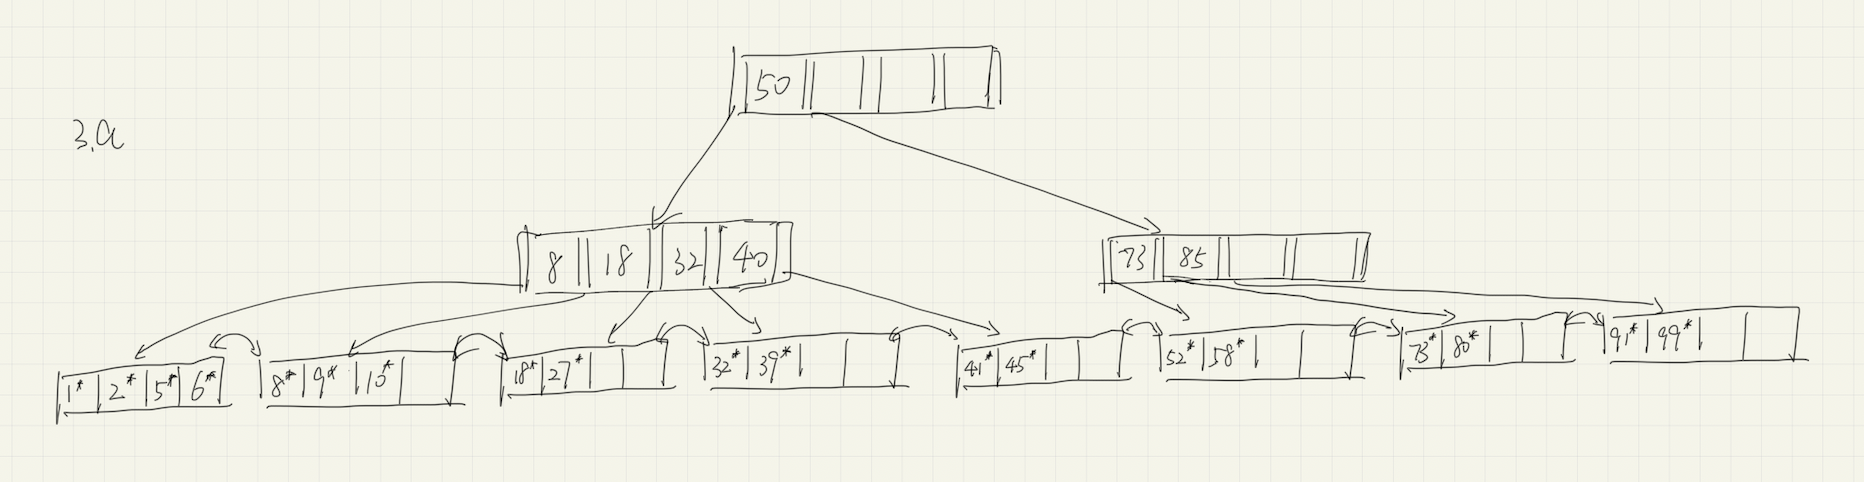 50
3.a
8 18 32 40
73 85
1* 2* 5* 6*
8* 9* 10*
18* 27*
32* 39*
41* 45*
52* 58*
73* 80*
91* 99*